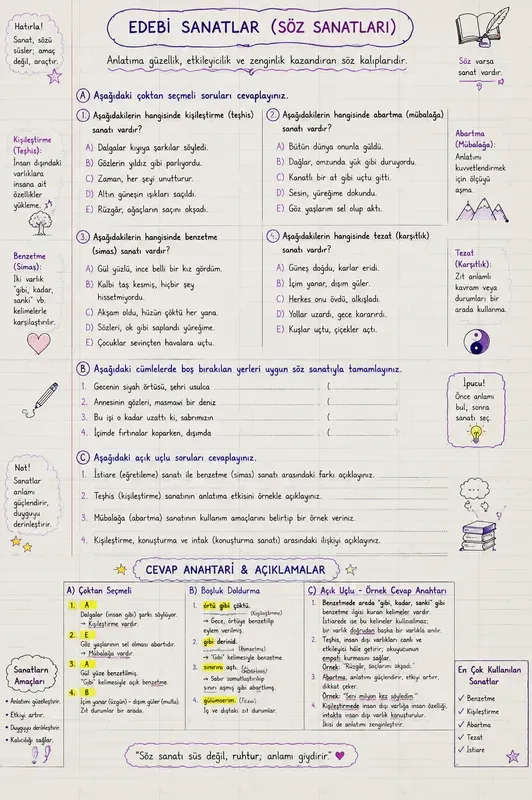 EDEBİ SANATLAR (SÖZ SANATLARI)
Anlatıma güzellik, etkileyicilik ve zenginlik kazandıran söz kalıplarıdır.
Hatırla!
Sanat, sözü
süsler; amaç
değil, araçtır.
Söz varsa
sanat vardır.
Kişileştirme
(Teşhis):
İnsan dışındaki
varlıklara
insana ait
özellikler
yükleme.
Benzetme
(Simaş):
İki varlık
"gibi, kadar,
sanki" vb.
kelimelerle
karşılaştırılır.
Not!
Sanatlar
anlamı
güçlendirir,
duyguyu
derinleştirir.
A Aşağıdaki çoktan seçmeli soruları cevaplayınız.
1. Aşağıdakilerin hangisinde kişileştirme (teşhis)
sanatı vardır?
A) Dalgalar kıyıya şarkılar söyledi.
B) Gözlerin yıldız gibi parlıyordu.
C) Zaman, her şeyi unutturur.
D) Altın güneşin ışıkları saçıldı.
E) Rüzgâr, ağaçların saçını okşadı.
2. Aşağıdakilerin hangisinde abartma (mübalağa)
sanatı vardır?
A) Bütün dünya onunla güldü.
B) Dağlar, omzunda yük gibi duruyordu.
C) Kanatlı bir at gibi uçtu gitti.
D) Sesin, yüreğime dokundu.
E) Göz yaşlarım sel olup aktı.
3. Aşağıdakilerin hangisinde benzetme
(simas) sanatı vardır?
A) Gül yüzlü, ince belli bir kız gördüm.
B) Kalbi taş kesmiş, hiçbir şey
hissetmiyordu.
C) Akşam oldu, hüzün çöktü her yana.
D) Sözleri, ok gibi saplandı yüreğime.
E) Çocuklar sevinçten havalara uçtu.
4. Aşağıdakilerin hangisinde tezat (karşıtlık)
sanatı vardır?
A) Güneş doğdu, karlar eridi.
B) İçim yanar, dışım güler.
C) Herkes onu övdü, alkışladı.
D) Yollar uzardı, gece kararırdı.
E) Kuşlar uçtu, çiçekler açtı.
Abartma
(Mübalağa):
Anlatımı
kuvvetlendirmek
için ölçüyü
aşma.
Tezat
(Karşıtlık):
Zıt anlamlı
kavram veya
durumları bir
arada kullanma.
İpucu!
Önce anlamı
bul, sonra
sanatı seç.
B Aşağıdaki cümlelerde boş bırakılan yerleri uygun söz sanatıyla tamamlayınız.
1. Gecenin siyah örtüsü, şehri usulca ( )
2. Annesinin gözleri, masmavi bir deniz ( )
3. Bu işi o kadar uzattı ki, sabrımızın ( )
4. İçimde fırtınalar koparken, dışımda ( )
C Aşağıdaki açık uçlu soruları cevaplayınız.
1. İstiare (eğretileme) sanatı ile benzetme (simas) sanatı arasındaki farkı açıklayınız.
2. Teşhis (kişileştirme) sanatının anlatıma etkisini örnekle açıklayınız.
3. Mübalağa (abartma) sanatının kullanım amaçlarını belirtip bir örnek veriniz.
4. Kişileştirme, konuşturma ve intak (konuşturma sanatı) arasındaki ilişkiyi açıklayınız.
CEVAP ANAHTARI & AÇIKLAMALAR
A) Çoktan Seçmeli
1. A
Dalgalar (insan gibi) şarkı söylüyor.
→ Kişileştirme vardır.
2. E
Göz yaşlarının sel olması abartıdır.
→ Mübalağa vardır.
3. A
Gül yüze benzetilmiş.
"Gibi" kelimesiyle açık benzetme.
4. B
İçim yanar (üzgün) – dışım güler (mutlu).
Zıt durumlar bir arada.
B) Boşluk Doldurma
1. örtü gibi çöktü.
(Kişileştirme)
→ Gece, örtüye benzetilip
eylem verilmiş.
2. gibi derindi.
(Benzetme)
→ "Gibi" kelimesiyle benzetme.
3. sınırını aştı.
→ Sabır somutlaştırılıp
sınırı aşmış gibi abartılmış.
4. gülümserim. (Tezat)
İç ve dıştaki zıt durumlar.
C) Açık Uçlu - Örnek Cevap Anahtarı
1. Benzetmede arada "gibi, kadar, sanki" gibi
benzetme ilgisi kuran kelimeler vardır.
İstiarede ise bu kelimeler kullanılmaz;
bir varlık doğrudan başka bir varlıkla anılır.
2. Teşhis, insan dışı varlıkları canlı ve
etkileyici hâle getirir; okuyucunun
empati kurmasını sağlar.
Örnek: "Rüzgâr, saçlarını okşadı."
3. Abartma, anlatımı güçlendirir, etkiyi artırır,
dikkat çeker.
Örnek: "Seni milyon kez söyledim."
4. Kişileştirmede insan dışı varlığa insan özelliği,
intakta insan dışı varlık konuşturulur.
İkisi de anlatımı zenginleştirir.
Sanatların
Amaçları
• Anlatımı güzelleştirir.
• Etkiyi artırır.
• Duyguyu derinleştirir.
• Kalıcılığı sağlar.
En Çok Kullanılan
Sanatlar
✓ Benzetme
✓ Kişileştirme
✓ Abartma
✓ Tezat
✓ İstiare
"Söz sanatı süs değil, ruhtur; anlamı giydirir."